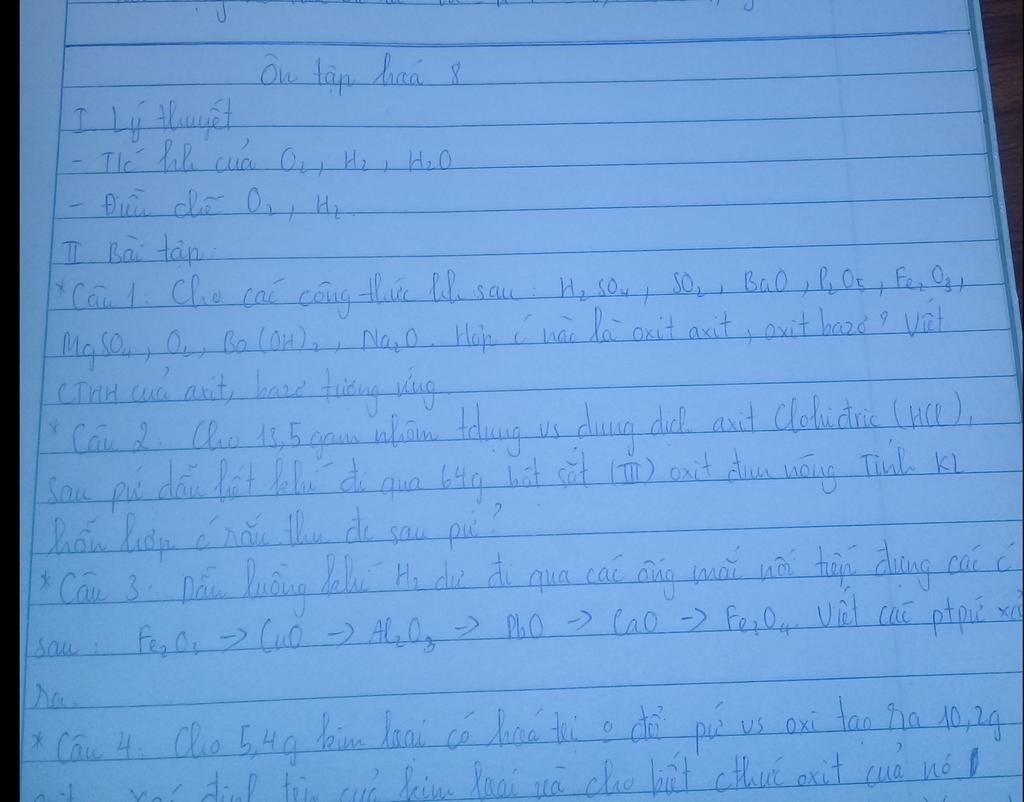 Ôn tập hoá 8
I Lý thuyết
- T/c hh của O2, H2, H2O
- Điều chế O2, H2.
II Bài tập:
* Câu 1: Cho các công thức hh sau: H2SO4, SO2, BaO, P2O5, Fe2O3,
MgSO4, O2, Ba(OH)2, Na2O. Hợp c nào là oxit axit, oxit bazơ? Viết
CTHH của axit, bazơ tương ứng.
* Câu 2. Cho 13,5 gam nhôm tdụng vs dung dịch axit Clohiđric (HCl),
sau pứ dẫn hết khí đi qua 64g bột sắt (III) oxit đun nóng Tính KL
hỗn hợp c rắn thu đc sau pứ?
* Câu 3. Dẫn luồng khí H2 dư đi qua các ống mắc nối tiếp đựng các c
sau: Fe2O3 -> CuO -> Al2O3 -> PbO -> CaO -> Fe3O4. Viết các ptpứ xả
ra.
* Câu 4. Cho 5,4g kim loại có hoá trị o đổi pứ vs oxi tạo ra 10,2g
định tên của kim loại và cho biết cthức oxit của nó